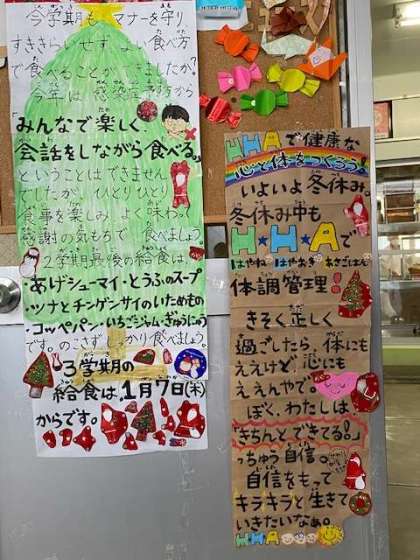 今学期も、マナーを守り
すききらいせず、よい食べ方
で食べることができましたか？
今年は、感染症予防から
「みんなで楽しく、
会話をしながら食べる。」
ということはできません
でしたが、ひとりひとり
食事を楽しみ、よく味わって
感謝の気もちで食べましょう。
2学期最後の給食は
・あげシューマイ・とうふのスープ
・ツナとチンゲンサイのいためもの
・コッペパン・いちごジャム・ぎゅうにゅう
です。のこさずしっかり食べましょう。
3学期の
給食は、1月7日(木)
からです。
HHAで健康な
心と体をつくろう！
いよいよ冬休み。
冬休み中も
H★H★Aで
はやね はやおき あさごはん
体調管理！
きそく正しく
過ごしたら、体にも
ええけど、心にも
ええんやで。
ぼく、わたしは
「きちんとできてる!」
っちゅう自信。
自信をもって
キラキラと生きて
いきたいなぁ。
HHA